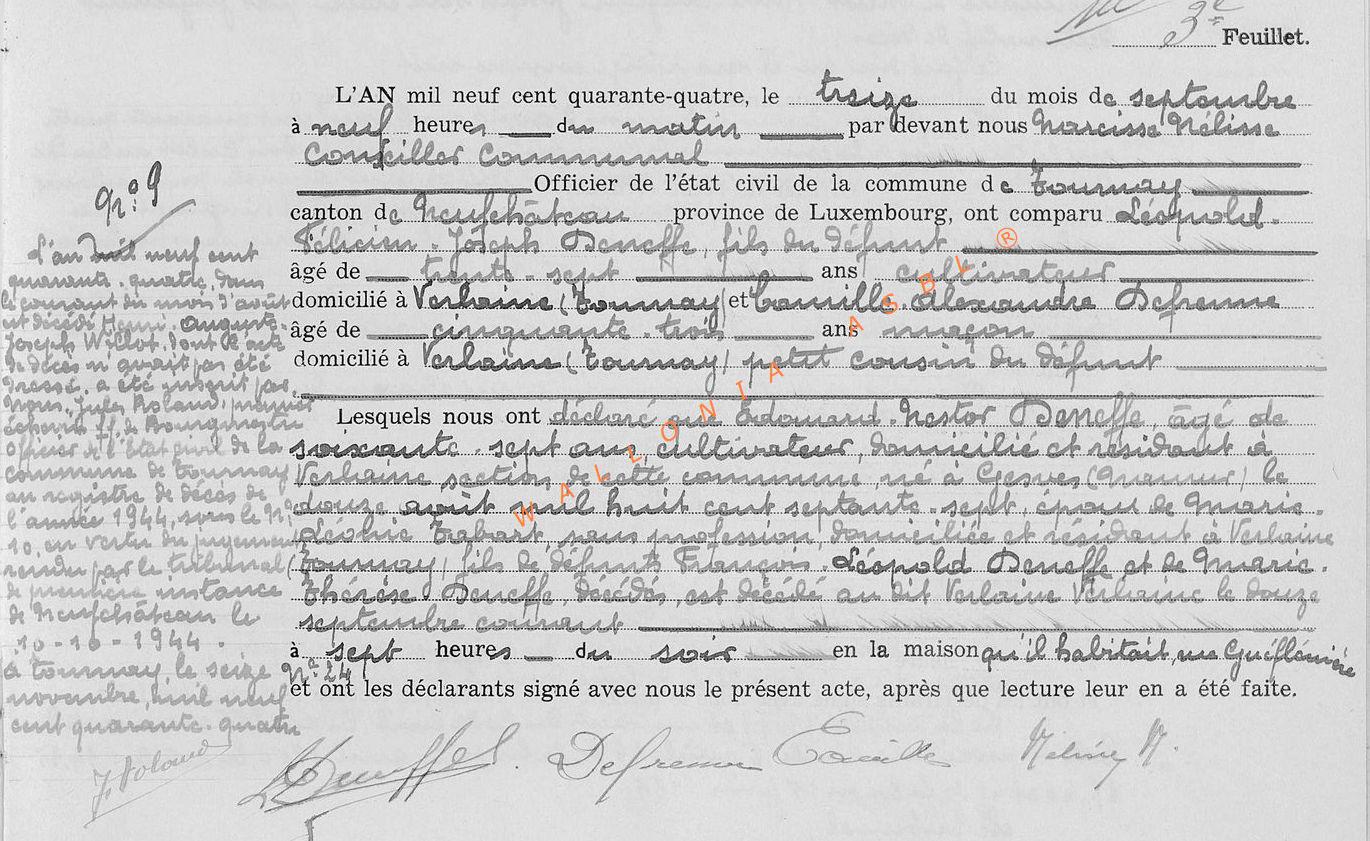 3e Feuillet.
L'AN mil neuf cent quarante-quatre, le treize du mois de septembre
à neuf heures du matin par devant nous Narcisse Nélisse
Conseiller Communal
Officier de l'état civil de la commune de Tournay
canton de Neufchâteau province de Luxembourg, ont comparu Léopold-
Félicien-Joseph Deneffe, fils du défunt
âgé de trente-sept ans cultivateur
domicilié à Verlaine (Tournay) et Camille Alexandre Defrenne
âgé de cinquante-trois ans maçon
domicilié à Verlaine (Tournay) petit cousin du défunt
Lesquels nous ont déclaré que Edouard-Nestor Deneffe, âgé de
soixante-sept ans, cultivateur, domicilié et résidant à
Verlaine section de cette commune, né à Gesves (Namur) le
douze août mil huit cent septante-sept, époux de Marie-
Léonie Tabart, sans profession, domiciliée et résidant à Verlaine
(Tournay) fils de défunts François-Léopold Deneffe et de Marie-
Thérèse Deneffe, décédés, est décédé au dit Verlaine Verlaine le douze
septembre courant
à sept heures du soir en la maison qu'il habitait, rue
N° 24
et ont les déclarants signé avec nous le présent acte, après que lecture leur en a été faite.
Deneffe L. Defrenne Camille Nélisse N.
N° 9
L'an mil neuf cent
quarante-quatre, dans
le courant du mois d'août
est décédé Henri-Auguste-
Joseph Willot, dont l'acte
de décès n'ayant pas été
dressé, a été inscrit par
Nous, Jules Roland, premier
échevin ff de Bourgmestre
Officier de l'Etat civil de la
commune de Tournay
au registre de décès de
l'année 1944, sous le N°
10, en vertu du jugement
rendu par le tribunal
de première instance
de Neufchâteau le
10-10-1944.
A Tournay, le seize
novembre, mil neuf
cent quarante-quatre
J. Roland
WALLONIA ASBL ®